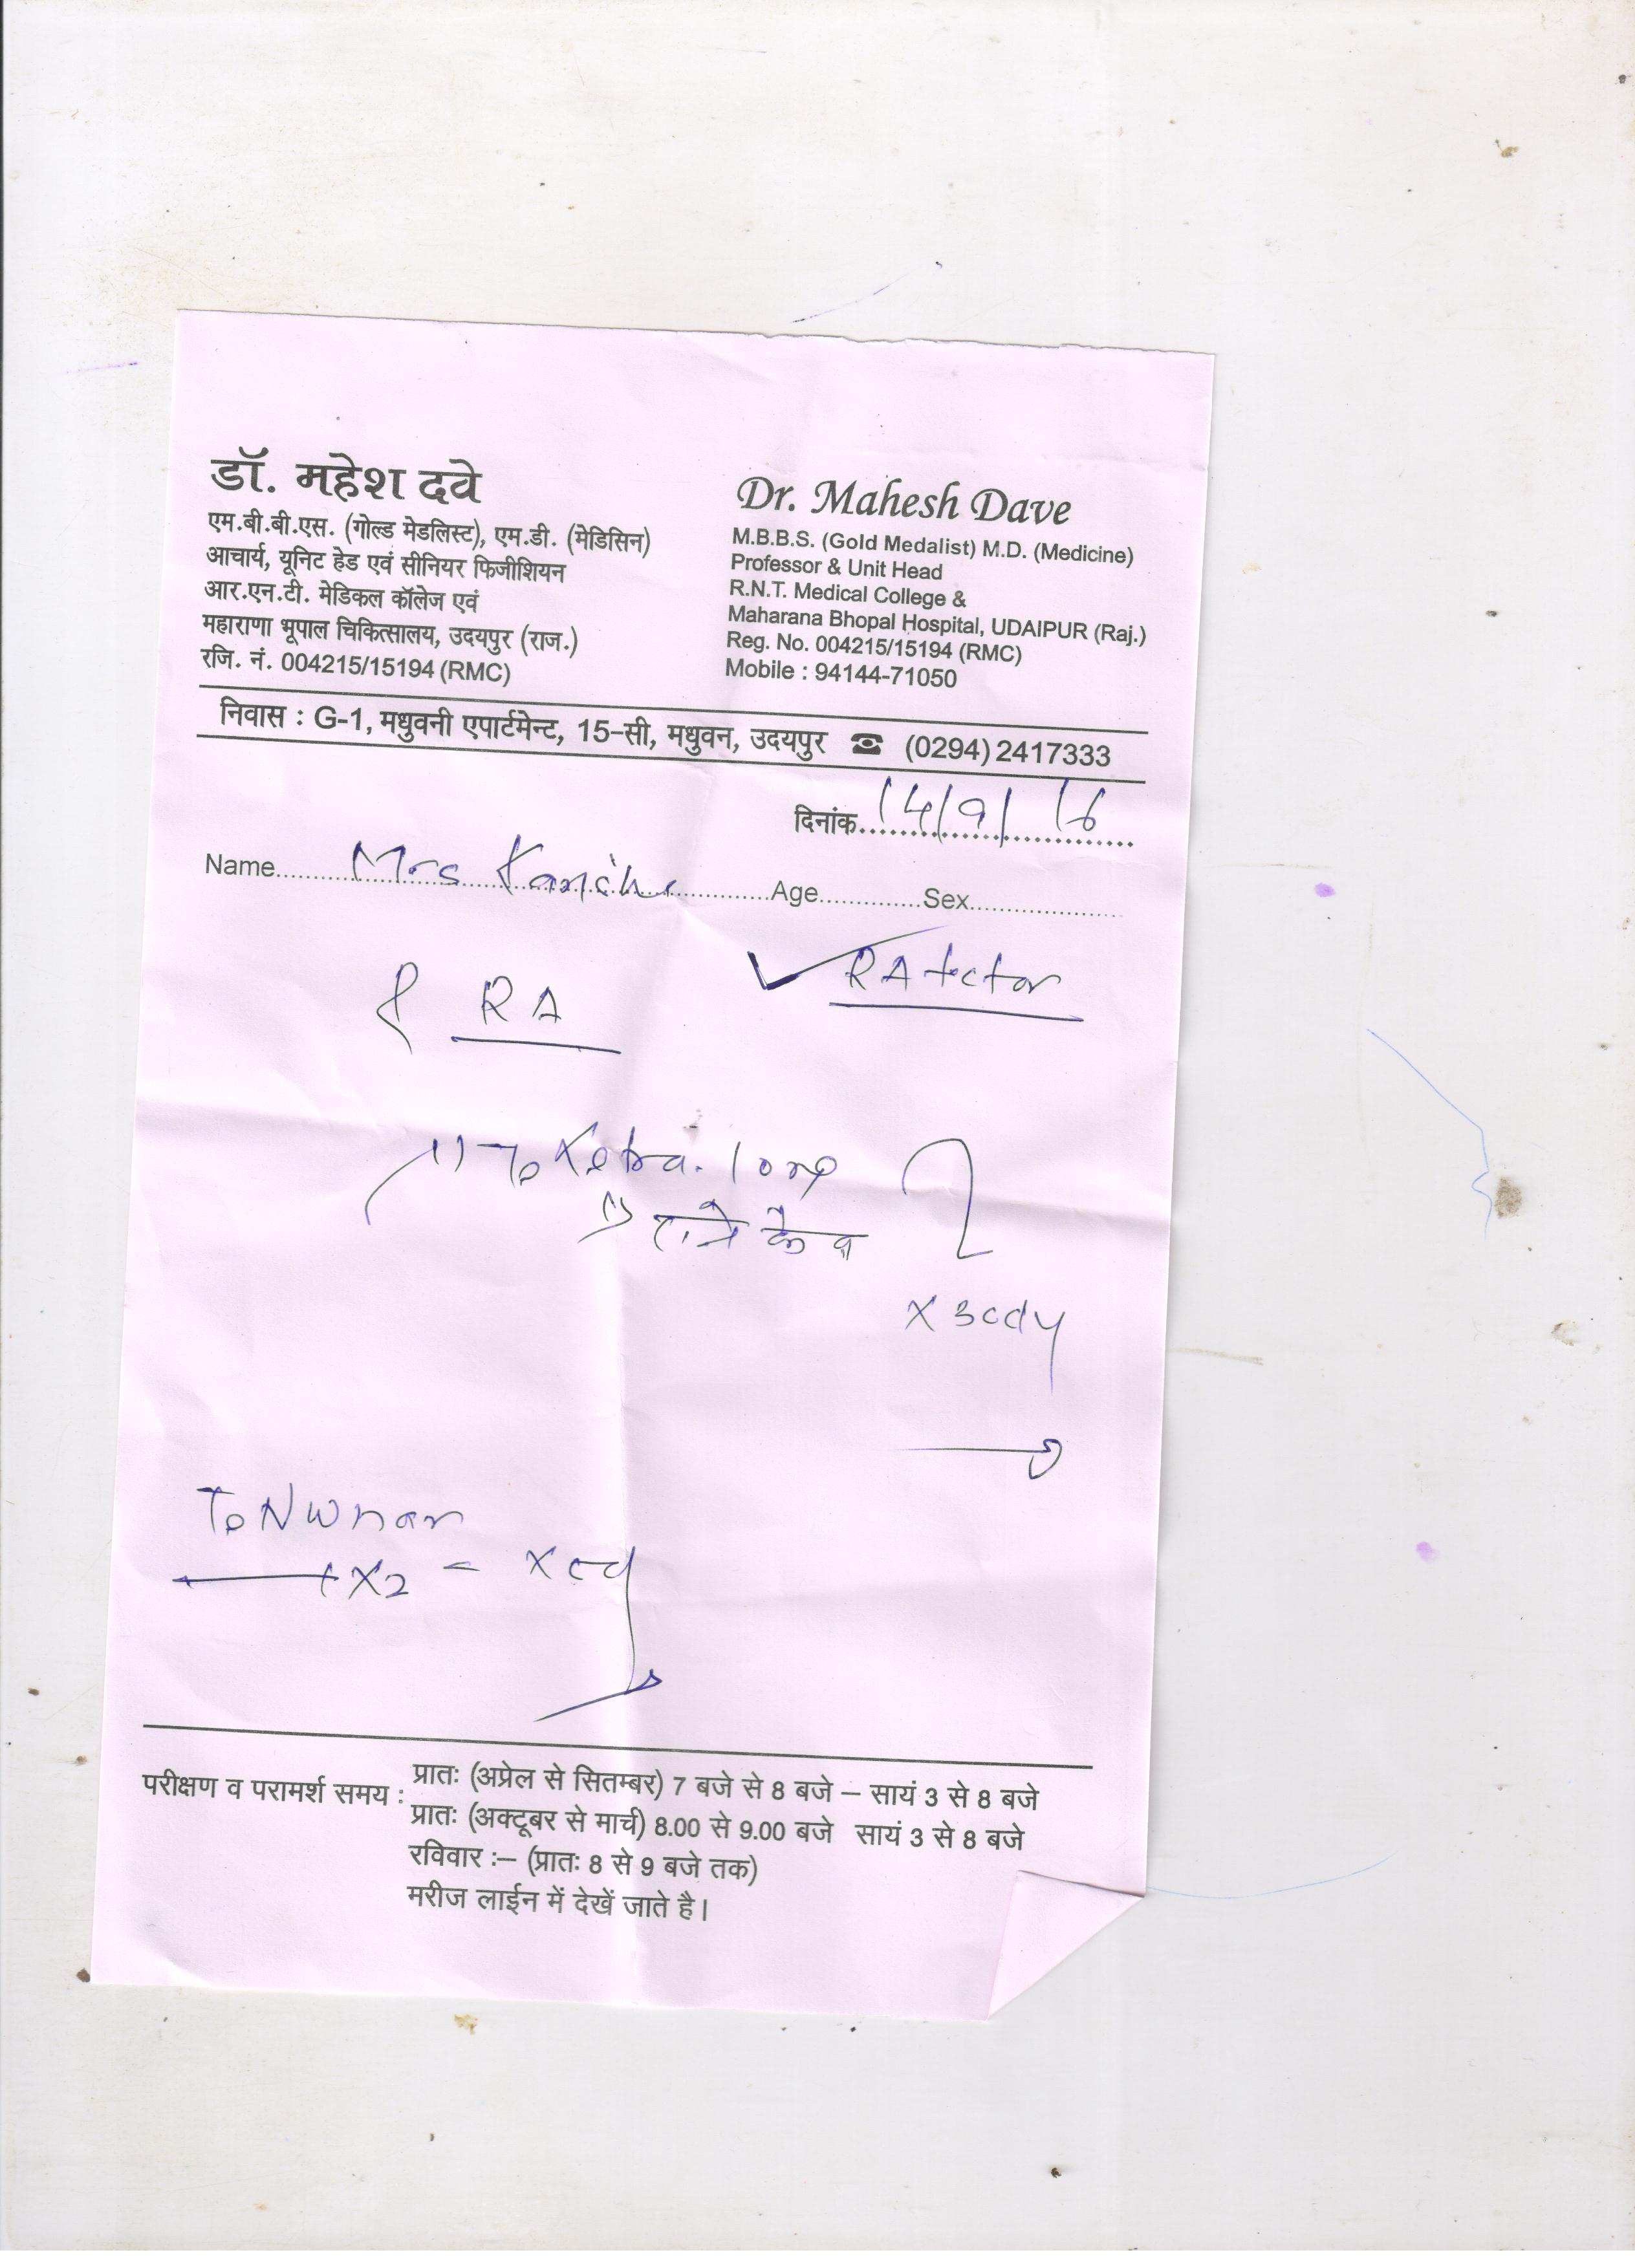 डॉ. महेश दवे
एम.बी.बी.एस. (गोल्ड मेडलिस्ट), एम.डी. (मेडिसिन)
आचार्य, यूनिट हेड एवं सीनियर फिजीशियन
आर.एन.टी. मेडिकल कॉलेज एवं
महाराणा भूपाल चिकित्सालय, उदयपुर (राज.)
रजि. नं. 004215/15194 (RMC)
Dr. Mahesh Dave
M.B.B.S. (Gold Medalist) M.D. (Medicine)
Professor & Unit Head
R.N.T. Medical College &
Maharana Bhopal Hospital, UDAIPUR (Raj.)
Reg. No. 004215/15194 (RMC)
Mobile : 94144-71050
निवास : G-1, मधुवनी एपार्टमेन्ट, 15-सी, मधुवन, उदयपुर ☎ (0294) 2417333
दिनांक 14/9/16
Name Mrs Age Sex
RA
RA
परीक्षण व परामर्श समय : प्रातः (अप्रेल से सितम्बर) 7 बजे से 8 बजे – सायं 3 से 8 बजे
प्रातः (अक्टूबर से मार्च) 8.00 से 9.00 बजे सायं 3 से 8 बजे
रविवार :– (प्रातः 8 से 9 बजे तक)
मरीज लाईन में देखें जाते है।